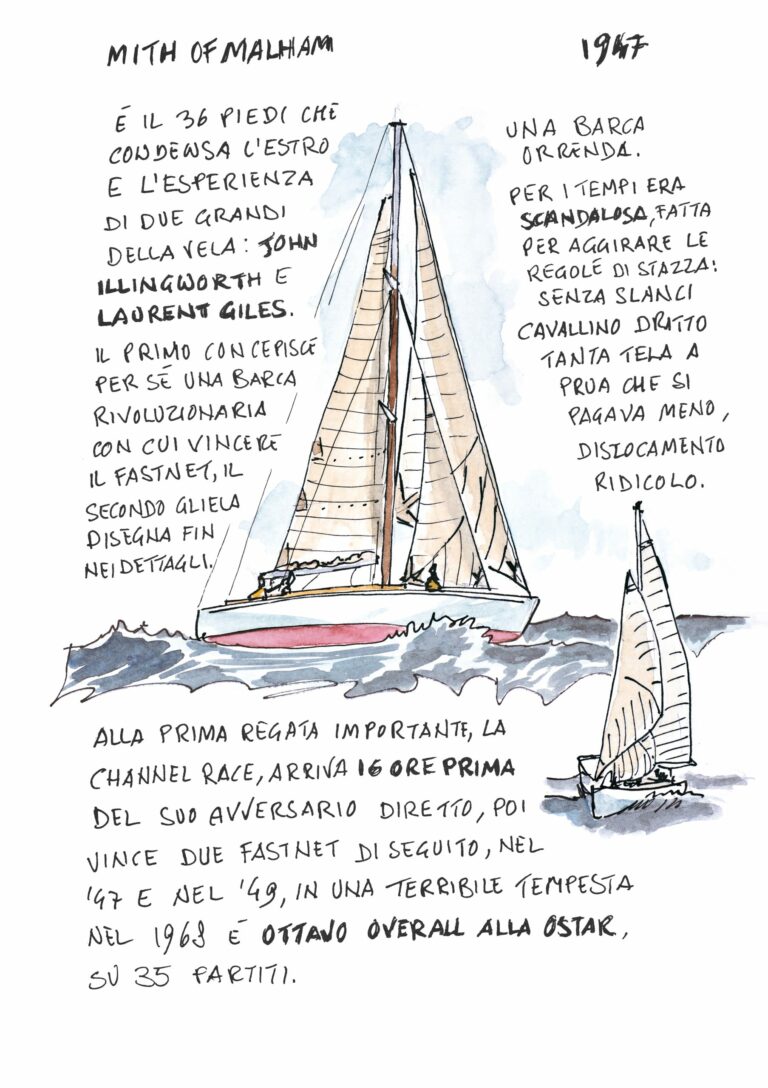 MITH OF MALHAM
1947
È IL 36 PIEDI CHE
CONDENSA L'ESTRO
E L'ESPERIENZA
DI DUE GRANDI
DELLA VELA: JOHN
ILLINGWORTH E
LAURENT GILES.
IL PRIMO CONCEPISCE
PER SÉ UNA BARCA
RIVOLUZIONARIA
CON CUI VINCERE
IL FASTNET, IL
SECONDO GLIELA
DISEGNA FIN
NEI DETTAGLI.
UNA BARCA
ORRENDA.
PER I TEMPI ERA
SCANDALOSA, FATTA
PER AGGIRARE LE
REGOLE DI STAZZA:
SENZA SLANCI
CAVALLINO DRITTO
TANTA TELA A
PRUA CHE SI
PAGAVA MENO,
DISLOCAMENTO
RIDICOLO.
ALLA PRIMA REGATA IMPORTANTE, LA
CHANNEL RACE, ARRIVA 16 ORE PRIMA
DEL SUO AVVERSARIO DIRETTO, POI
VINCE DUE FASTNET DI SEGUITO, NEL
'47 E NEL '49, IN UNA TERRIBILE TEMPESTA
NEL 1968 È OTTAVO OVERALL ALLA OSTAR,
SU 35 PARTITI.